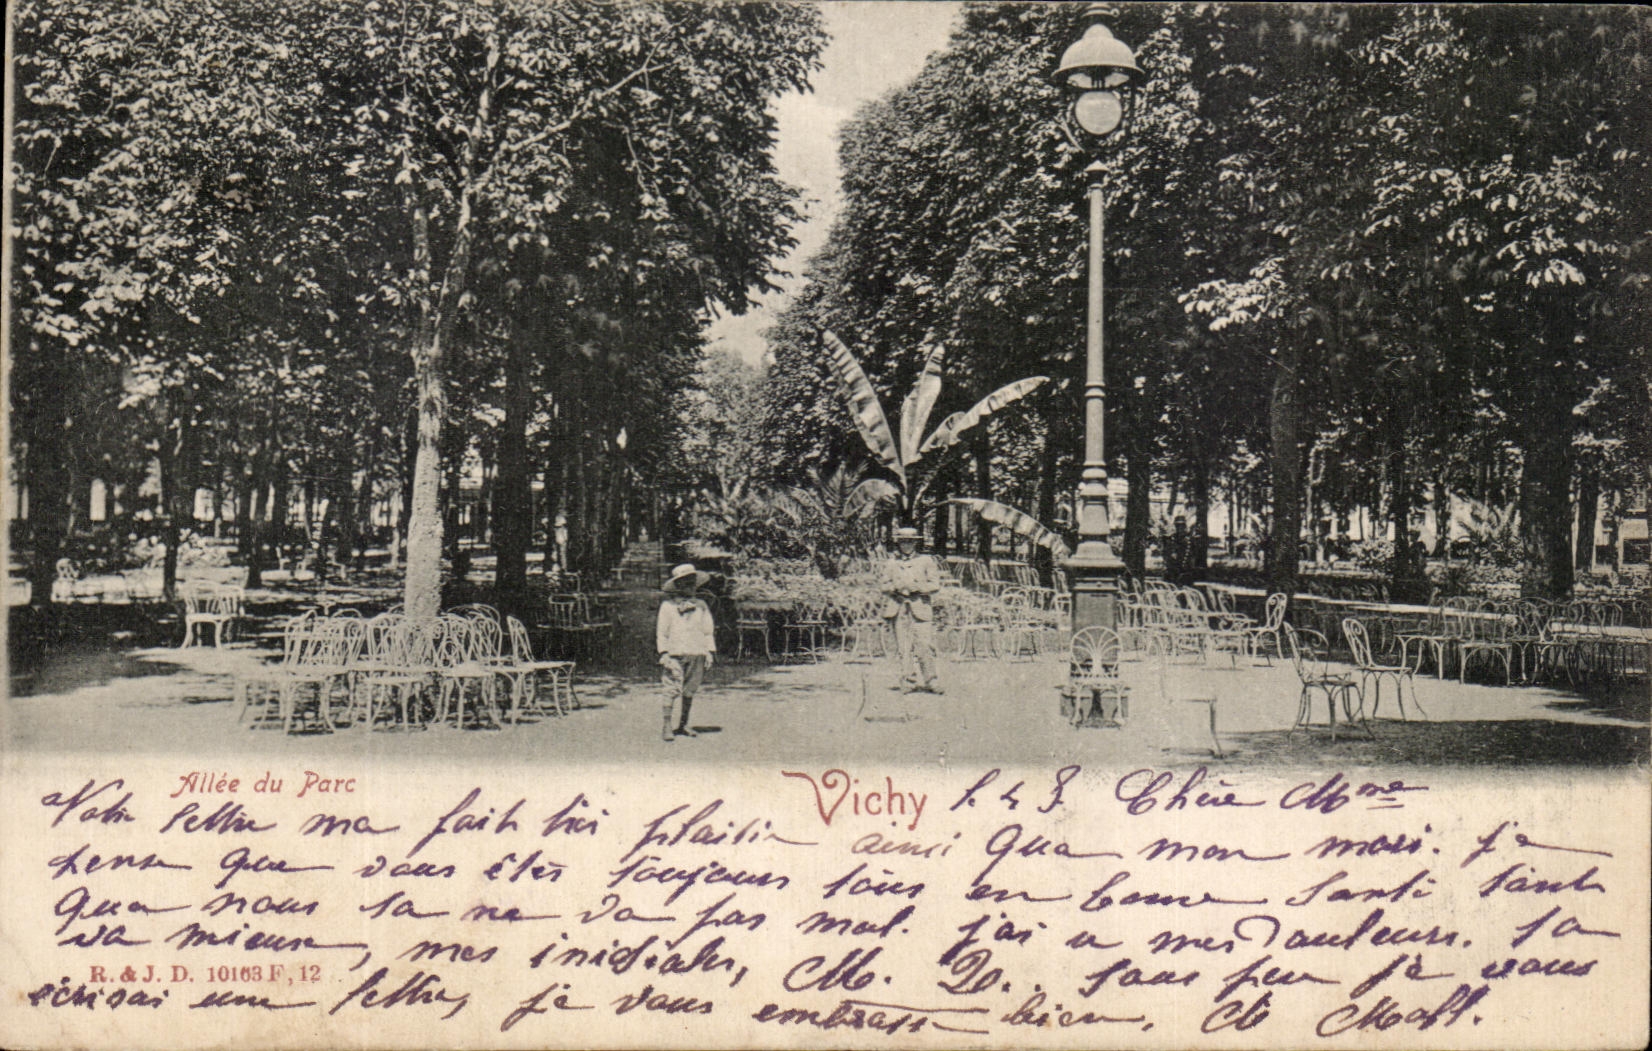 Allée du Parc
Vichy
Chère Mme
Votre lettre ma fait très plaisir ainsi que mon mari. je
pense que vous êtes toujours tous en bonne santé tant
que nous sa ne va pas mal. j'ai u mes douleurs. sa
va mieux, mes initiales, M. D.. sous peu je vous
R. & J. D. 10163 F, 12
écrirai une lettre, je vous embrasse bien,